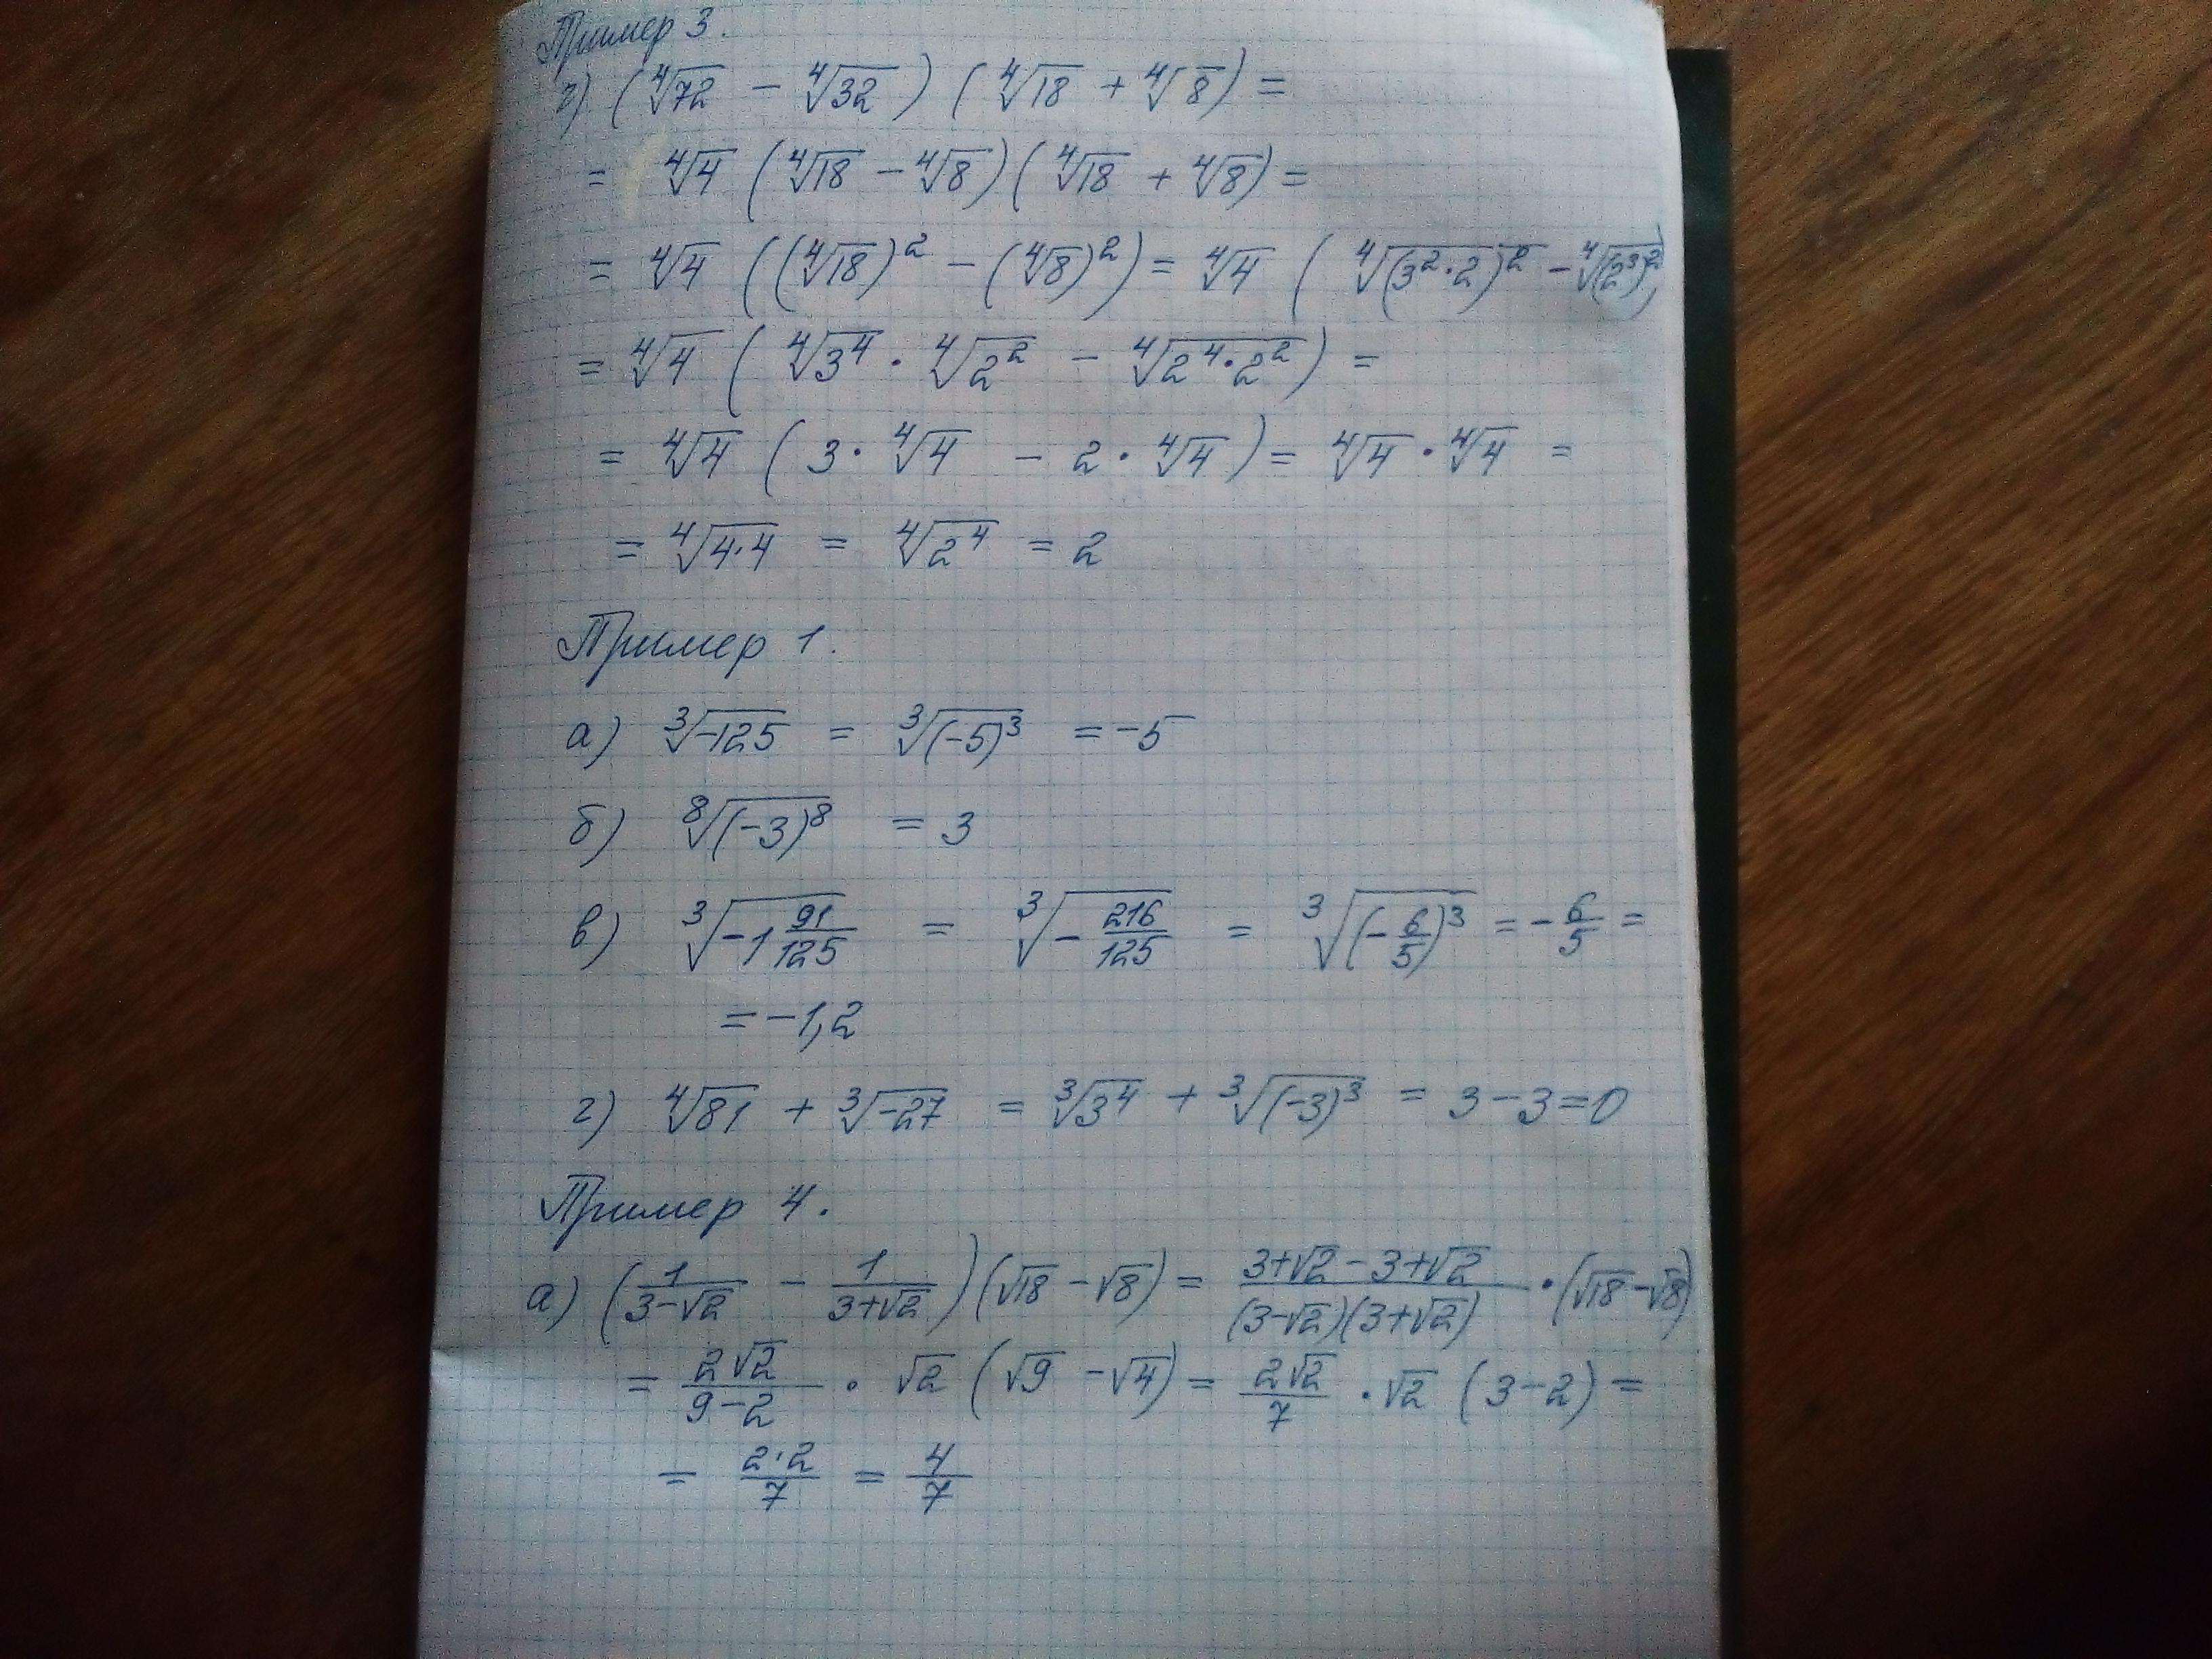 Пример 3.
г) (∜72 − ∜32) (∜18 + ∜8) =
= ∜4 (∜18 − ∜8) (∜18 + ∜8) =
= ∜4 ((∜18)² − (∜8)²) = ∜4 (∜(3²·2)² − ∜(2³)²)
= ∜4 (∜3⁴ · ∜2² − ∜2⁴·2²) =
= ∜4 (3·∜4 − 2·∜4) = ∜4 · ∜4 =
= ∜4·4 = ∜2⁴ = 2
Пример 1.
а) ∛−125 = ∛(−5)³ = −5
б) ⁸√(−3)⁸ = 3
в) ∛−1 91/125 = ∛− 216/125 = ∛(− 6/5)³ = − 6/5 =
= −1,2
г) ∜81 + ∛−27 = ∛3⁴ + ∛(−3)³ = 3 − 3 = 0
Пример 4.
а) (1/(3−√2) − 1/(3+√2)) (√18 − √8) = (3+√2−3+√2)/((3−√2)(3+√2)) · (√18 − √8)
= 2√2/(9−2) · √2 (√9 − √4) = 2√2/7 · √2 (3−2) =
= 2·2/7 = 4/7